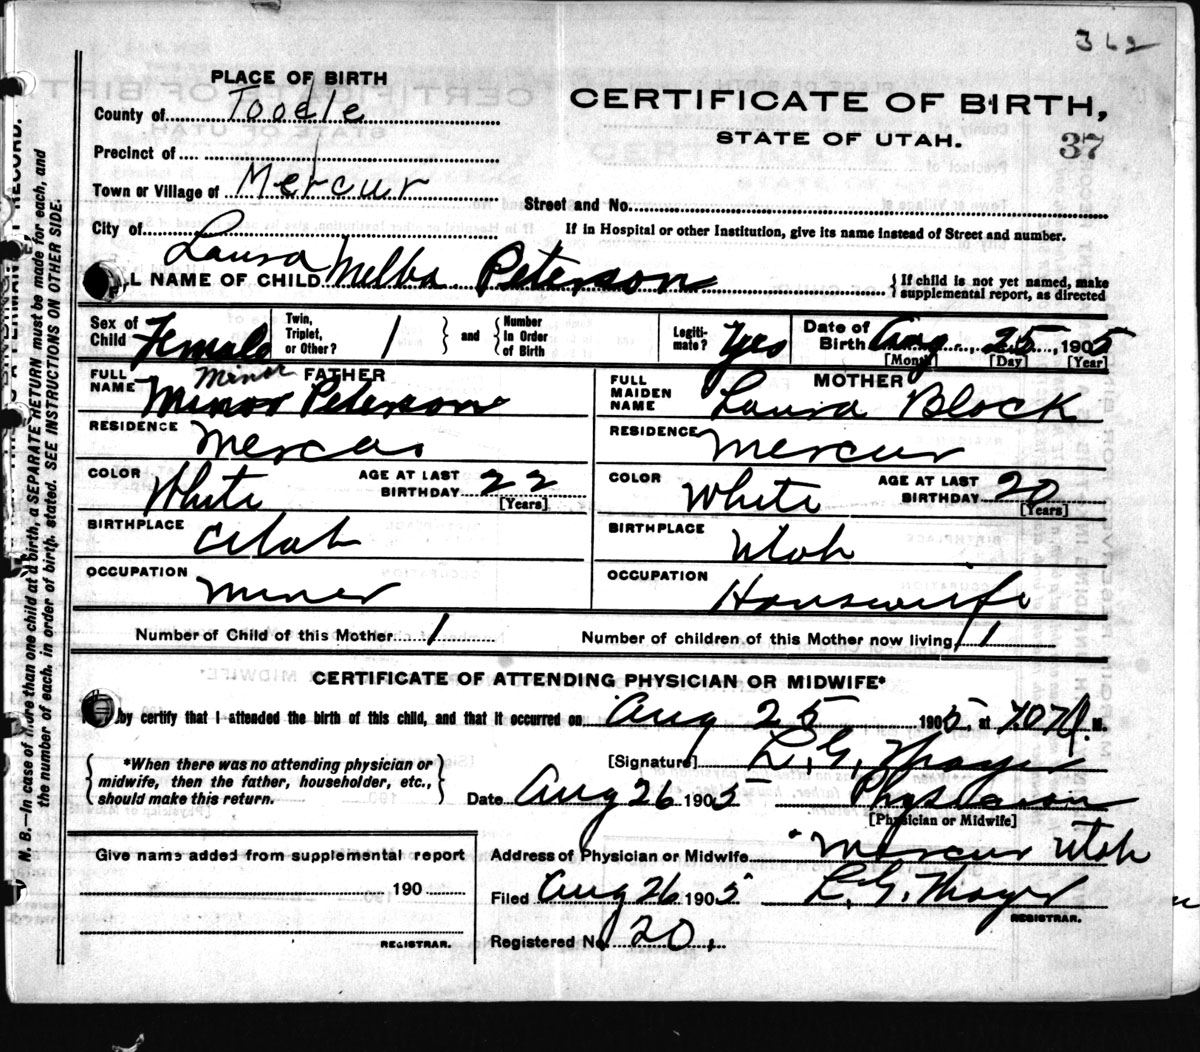 362
PLACE OF BIRTH
County of Tooele
CERTIFICATE OF BIRTH,
STATE OF UTAH.
37
Precinct of
Town or Village of Mercur
Street and No.
City of
If in Hospital or other Institution, give its name instead of Street and number.
Laura
L NAME OF CHILD Melba Peterson { If child is not yet named, make supplemental report, as directed
Sex of Child Female
Twin, Triplet, or Other? 1 } and { Number in Order of Birth
Legiti-mate? Yes
Date of Birth Aug 25, 1905
[Month] [Day] [Year]
FATHER
FULL NAME Minor Minor Peterson
RESIDENCE Mercur
COLOR White
AGE AT LAST BIRTHDAY 22
[Years]
BIRTHPLACE Utah
OCCUPATION Miner
MOTHER
FULL MAIDEN NAME Laura Block
RESIDENCE Mercur
COLOR White
AGE AT LAST BIRTHDAY 20
[Years]
BIRTHPLACE Utah
OCCUPATION Housewife
Number of Child of this Mother 1
Number of children of this Mother now living 1
CERTIFICATE OF ATTENDING PHYSICIAN OR MIDWIFE*
by certify that I attended the birth of this child, and that it occurred on Aug 25 1905, at 7.07 P. M.
{ *When there was no attending physician or midwife, then the father, householder, etc., should make this return. }
[Signature] L. G. Thayer
Date Aug 26 1905 Physician
[Physician or Midwife]
Give name added from supplemental report
190
REGISTRAR.
Address of Physician or Midwife Mercur Utah
Filed Aug 26 1905 L. G. Thayer
REGISTRAR.
Registered No. 20.
N. B.—In case of more than one child at a birth, a SEPARATE RETURN must be made for each, and
the number of each, in order of birth, stated. SEE INSTRUCTIONS ON OTHER SIDE.